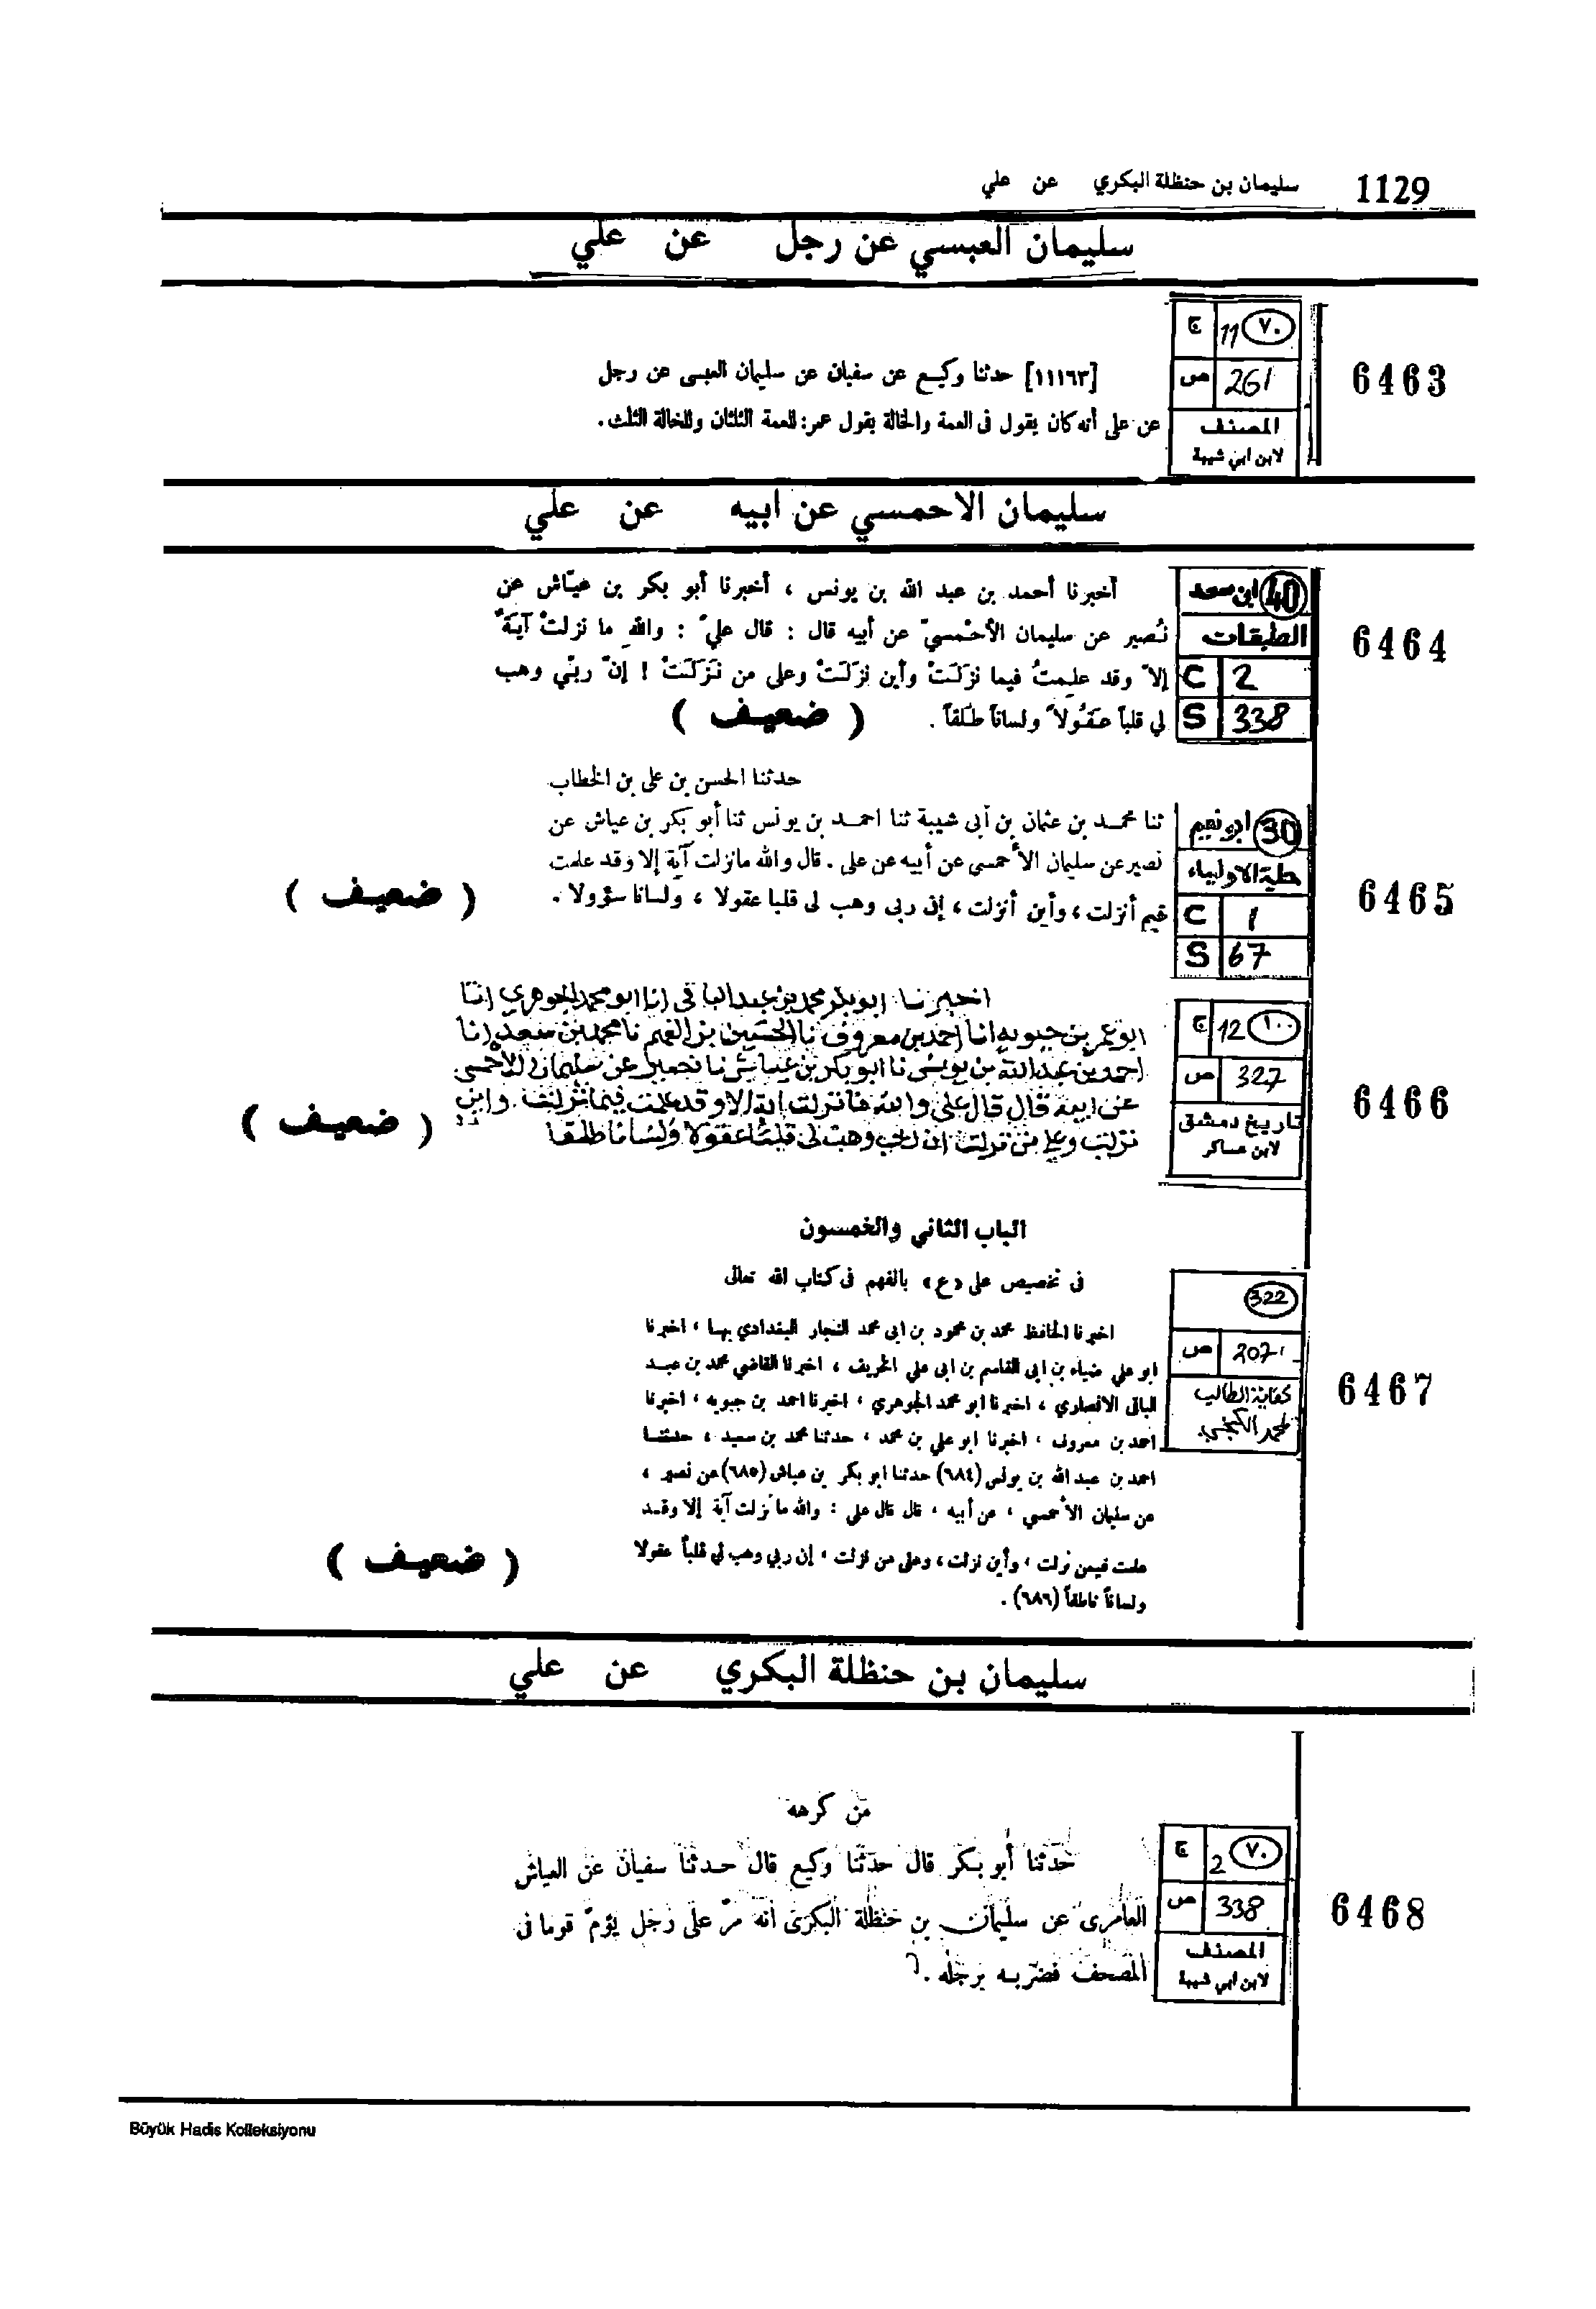 1129 سليمان بن حنظلة البكري عن علي
سليمان العبسي عن رجل عن علي
6463
٧٠ 11 ج
261 ص
المصنف
لابن ابي شيبة
[١١١٦٣] حدثنا وكيع عن سفيان عن سليمان العبسى عن رجل
عن على أنه كان يقول فى العمة والخالة يقول عمر: للعمة الثلثان وللخالة الثلث.
سليمان الاحمسي عن ابيه عن علي
6464
40 ابن سعد
الطبقات
C 2
S 338
أخبرنا أحمد بن عبد الله بن يونس ، أخبرنا أبو بكر بن عيّاش عن
نُصير عن سليمان الأحْمسيّ عن أبيه قال : قال عليّ : واللهِ ما نزلتْ آيَةٌ
إلاّ وقد علِمتُ فيما نزلَتْ وأين نزَلَتْ وعلى من نَزَلَتْ ! إنّ ربّي وهب
لي قلباً عَقُولاً ولساناً طَلْقاً .
( ضعيف )
6465
30 ابو نعيم
حلية الاولياء
C 1
S 67
حدثنا الحسن بن على بن الخطاب
ثنا محمد بن عثمان بن أبى شيبة ثنا احمد بن يونس ثنا أبو بكر بن عياش عن
نصير عن سليمان الأحمسى عن أبيه عن على . قال والله مانزلت آية إلا وقد علمت
فيم أنزلت ، وأين أنزلت ، إن ربى وهب لى قلبا عقولا ، ولسانا سؤولا .
( ضعيف )
6466
١٠٠ 12 ج
327 ص
تاريخ دمشق
لابن عساكر
اخبرنا ابو بكر محمد بن عبد الباقي انا ابو محمد الجوهري انا
ابو عمر بن حيويه انا احمد بن معروف نا الحسين بن الفهم نا محمد بن سعد انا
احمد بن عبد الله بن يونس نا ابو بكر بن عياش نا نصير عن سليمان الاحمسي
عن ابيه قال قال علي والله ما نزلت اية الا وقد علمت فيما نزلت واين
نزلت وعلى من نزلت ان ربي وهب لي قلبا عقولا ولسانا طلقا
( ضعيف )
6467
322
207 ص
كفاية الطالب
لمحمد الكنجي
الباب الثاني والخمسون
فى تخصيص على «ع» بالفهم فى كتاب الله تعالى
اخبرنا الحافظ محمد بن محمود بن ابى محمد النجار البغدادي بها ، اخبرنا
ابو علي ضياء بن ابى القاسم بن ابى علي الخريف ، اخبرنا القاضي محمد بن عبد
الباقى الانصاري ، اخبرنا ابو محمد الجوهري ، اخبرنا احمد بن حيويه ، اخبرنا
احمد بن معروف ، اخبرنا ابو علي بن محمد ، حدثنا محمد بن سعيد ، حدثنا
احمد بن عبد الله بن يونس (٦٨٤) حدثنا ابو بكر بن عياش (٦٨٥) عن نصير ،
عن سليمان الأحمسي ، عن أبيه ، قال قال علي : والله ما نزلت آية إلا وقد
علمت فيمن نزلت ، وأين نزلت ، وعلى من نزلت ، إن ربي وهب لي قلباً عقولا
ولساناً ناطقاً (٦٨٦) .
( ضعيف )
سليمان بن حنظلة البكري عن علي
6468
٧٠ 2 ج
338 ص
المصنف
لابن ابي شيبة
من كرهه
حدثنا أبو بكر قال حدثنا وكيع قال حدثنا سفيان عن العياش
العامرى عن سليمان بن حنظلة البكرى أنه مرّ على رجل يؤمّ قوما فى
المصحف فضربه برجله .
Büyük Hadis Kolleksiyonu